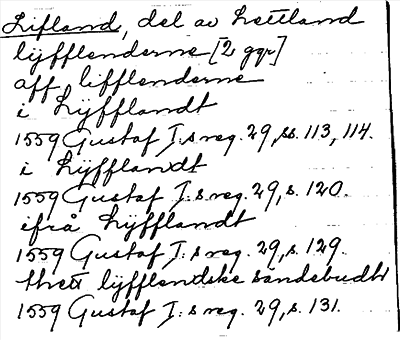 Lifland, del av Lettland
lÿfflenderne [2 ggr]
aff lifflenderne
i Lÿfflandt
1559 Gustaf I:s reg. 29, ss. 113, 114.
i Lÿfflandt
1559 Gustaf I:s reg. 29, s. 120.
ifrå Lÿfflandt
1559 Gustaf I:s reg. 29, s. 129.
lÿfflendske sändebudh
1559 Gustaf I:s reg. 29, s. 131.